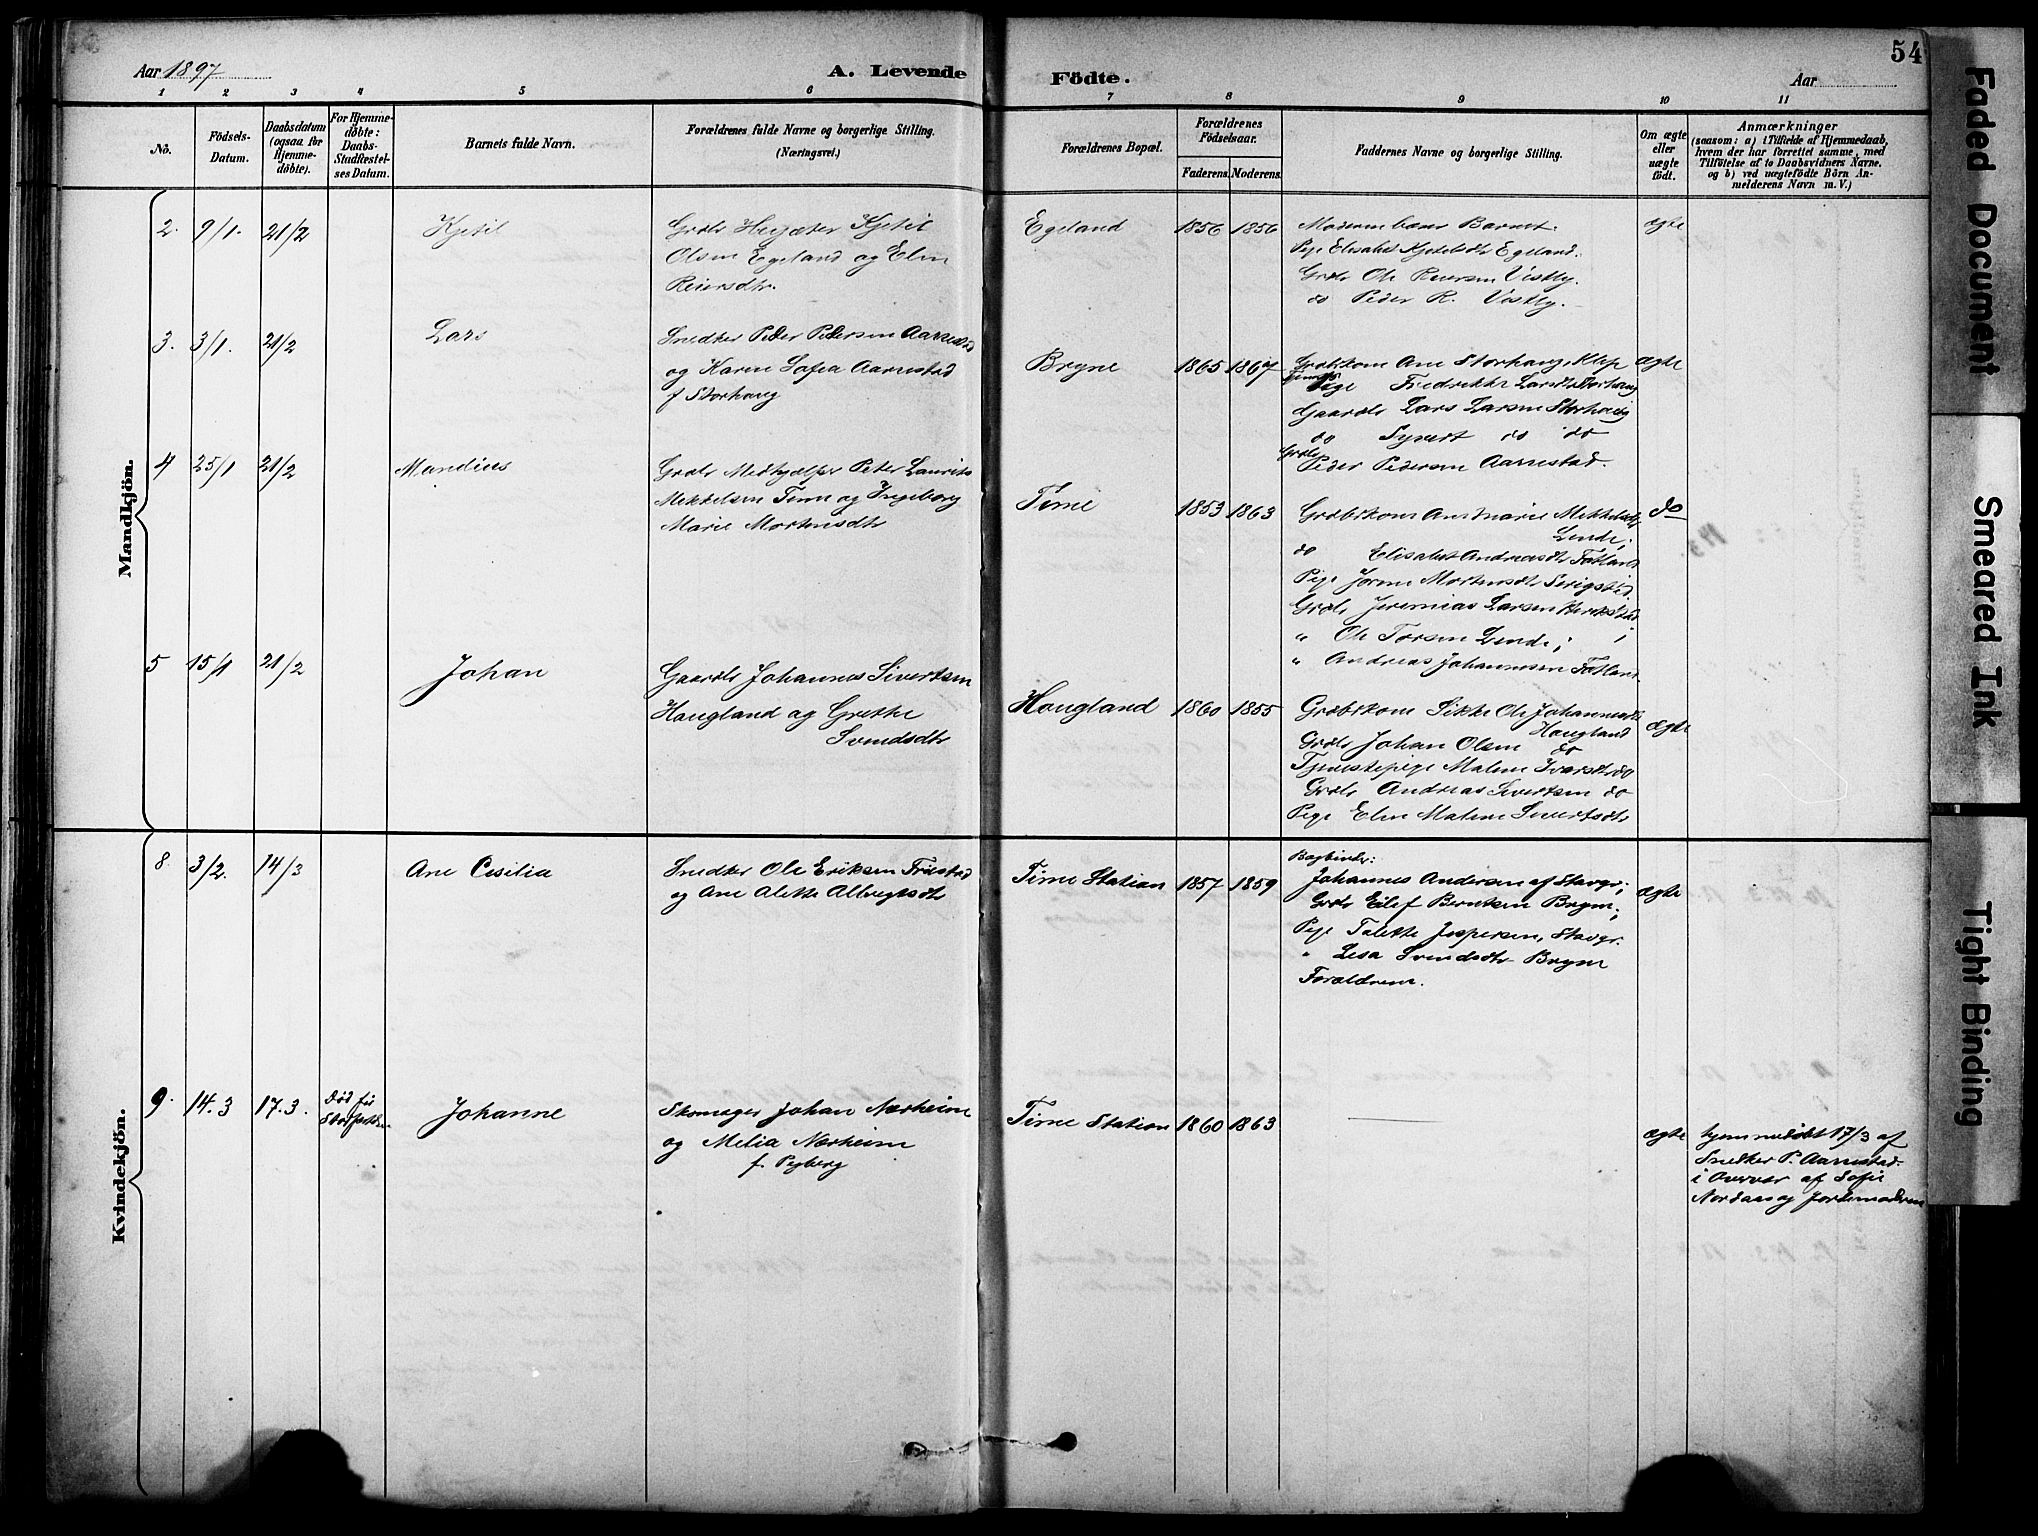 Aar 1897
A. Levende
Födte.
Aar
54
1 2 3 4 5 6 7 8 9 10 11
No.
Födsels-Datum.
Daabsdatum (ogsaa for Hjemmedöbte).
For Hjemmedöbte: Daabs-Stadfæstelses Datum.
Barnets fulde Navn.
Forældrenes fulde Navne og borgerlige Stilling.
(Næringsvei.)
Forældrenes Bopæl.
Forældrenes Födselsaar.
Faderens. Moderens.
Faddernes Navne og borgerlige Stilling.
Om ægte eller uægte födt.
Anmærkninger
(saasom: a) i Tilfælde af Hjemmedaab,
hvem der har forrettet samme, med
Tilföielse af to Daabsvidners Navne.
og b) ved uægtefödte Börn An-
melderens Navn m. V.)
Mandkjön.
2. 9/1. 21/2 Kjetil
Kjetil
Olsen Egeland og Elen
Reiersdtr.
Egeland 1856 1856
Moderen bar Barnet.
Pige Elisabet Kjetelsdtr Egeland.
Grdbr Ole Reiersen Vestly.
do Peder R. Vestly.
ægte
3. 3/1. 21/2 Lars
Snedker Peder Pedersen Aarrestad
og Karen Sofia Aarrestad
f Storhaug
Bryne 1865 1867
Grdbrkone Ane Storhaug, Klep
Pige Fredrikke Larsdtr Storhaug
Gaardbr Lars Larsen Storhaug
do Syvert do do
Grdbr Peder Pedersen Aarrestad.
ægte
4 25/1 21/2 Mandius
Grdbr Medhjælper Peter Laurits
Mikkelsen Time og Ingeborg
Marie Mortensdtr
Time 1853 1863
Grdbrkone Anmarie Mikkelsdtr
Lende;
do Elisabet Andreasdtr Fotland
Pige Jorine Mortensdtr Serigstad
Grdbr Jeremias Larsen
" Ole Torsen Lende;
" Andreas Johannesen Fotland.
do
5 15/1 21/2 Johan
Gaardbr Johannes Sivertsen
Haugland og Grethe
Svendsdtr
Haugland 1860 1855
Grdbrkone Sikke Ole Johannesdtr
Haugland
Grdbr Johan Olsen do
Tjenestepige Malene Ivarsdtr do
Grdbr Andreas Sivertsen do
Pige Elen Malene Sivertsdtr
ægte
Kvindekjön.
8. 3/2. 14/3 Ane Cesilia
Snedker Ole Eriksen Friestad
og Ane Alette Albregtsdtr
Time Station 1857 1859
Bogbinder:
Johannes Andersen af Stavgr;
Grdbr Eilef Berntsen Bryne;
Pige Talette Jespersen, Stavgr.
" Lesa Svendsdtr Bryne
Forældrene.
ægte
9. 14.3 17.3. Död før
Stadfæstelsen
Johanne
Skomager Johan Nærheim
og Melia Nærheim
f.
Time Station 1860 1863
ægte
hjemmedöbt 17/3 af
Snedker P. Aarrestad
i Overvær af Sofie
Nordaas og Jordemoderen